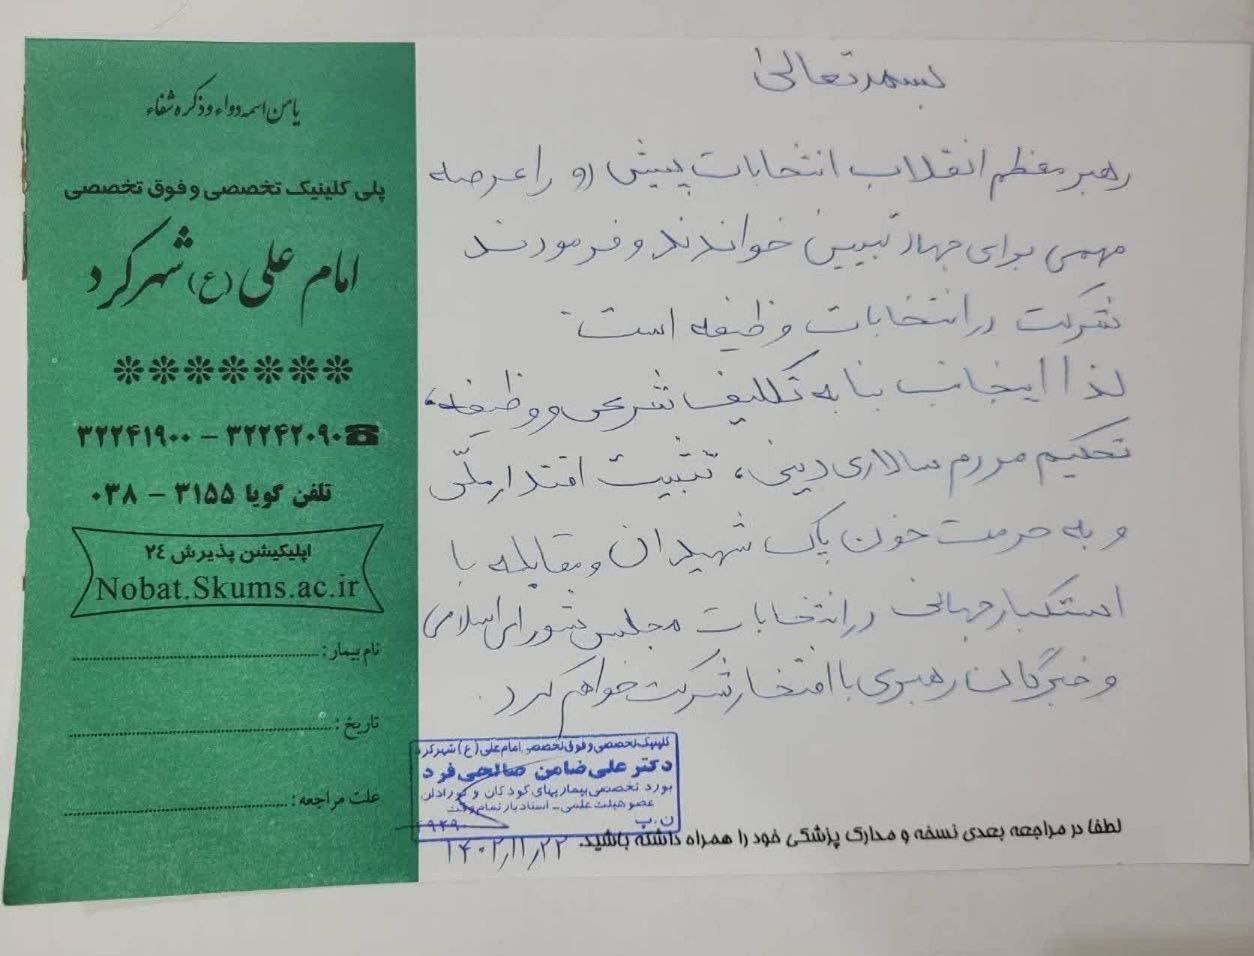 یا من اسمه دواء و ذکره شفاء
پلی کلینیک تخصصی و فوق تخصصی
امام علی (ع) شهرکرد
۳۲۲۴۱۹۰۰ – ۳۲۲۴۲۰۹۰
تلفن گویا ۳۱۵۵ – ۰۳۸
اپلیکیشن پذیرش ۲۴
Nobat.Skums.ac.ir
نام بیمار:
تاریخ:
علت مراجعه:
بسمه تعالی
رهبر معظم انقلاب انتخابات پیش رو را عرصه
مهمی برای جهاد تبیین خواندند و فرمودند
شرکت در انتخابات وظیفه است.
لذا اینجانب بنا به تکلیف شرعی و وظیفه،
تحکیم مردم سالاری دینی، تثبیت اقتدار ملّی
و به حرمت خون پاک شهیدان و مقابله با
استکبار جهانی در انتخابات مجلس شورای اسلامی
و خبرگان رهبری با افتخار شرکت خواهم کرد.
کلینیک تخصصی و فوق تخصصی امام علی (ع) شهرکرد
دکتر علی ضامن صالحی فرد
بورد تخصصی بیماریهای کودکان و نوزادان
عضو هیئت علمی – استادیار تمام وقت
ن.پ
لطفا در مراجعه بعدی نسخه و مدارک پزشکی خود را همراه داشته باشید.
۱۴۰۲/۱۱/۲۲